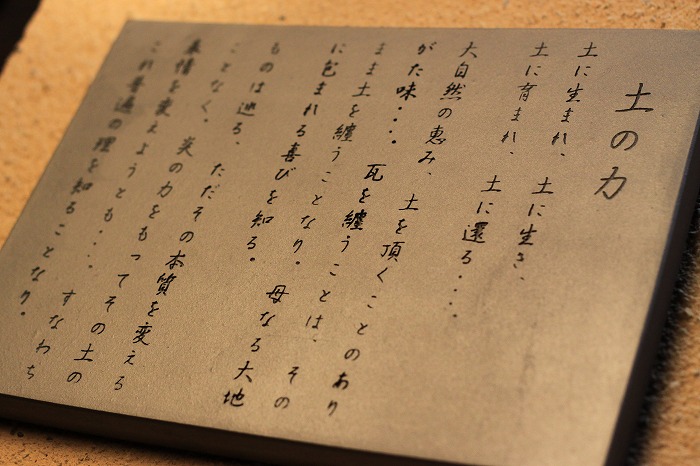 土の力
土に生まれ、 土に生き、
土に育まれ、 土に還る・・・・
大自然の恵み、 土を頂くことのあり
がた味・・・・ 瓦を纏うことは、その
まま土を纏うことなり。 母なる大地
に包まれる喜びを知る。
ものは巡る、 ただその本質を変える
ことなく。 炎の力をもってその土の
表情を変えようとも・・・・ すなわち
これ普遍の理を知ることなり。